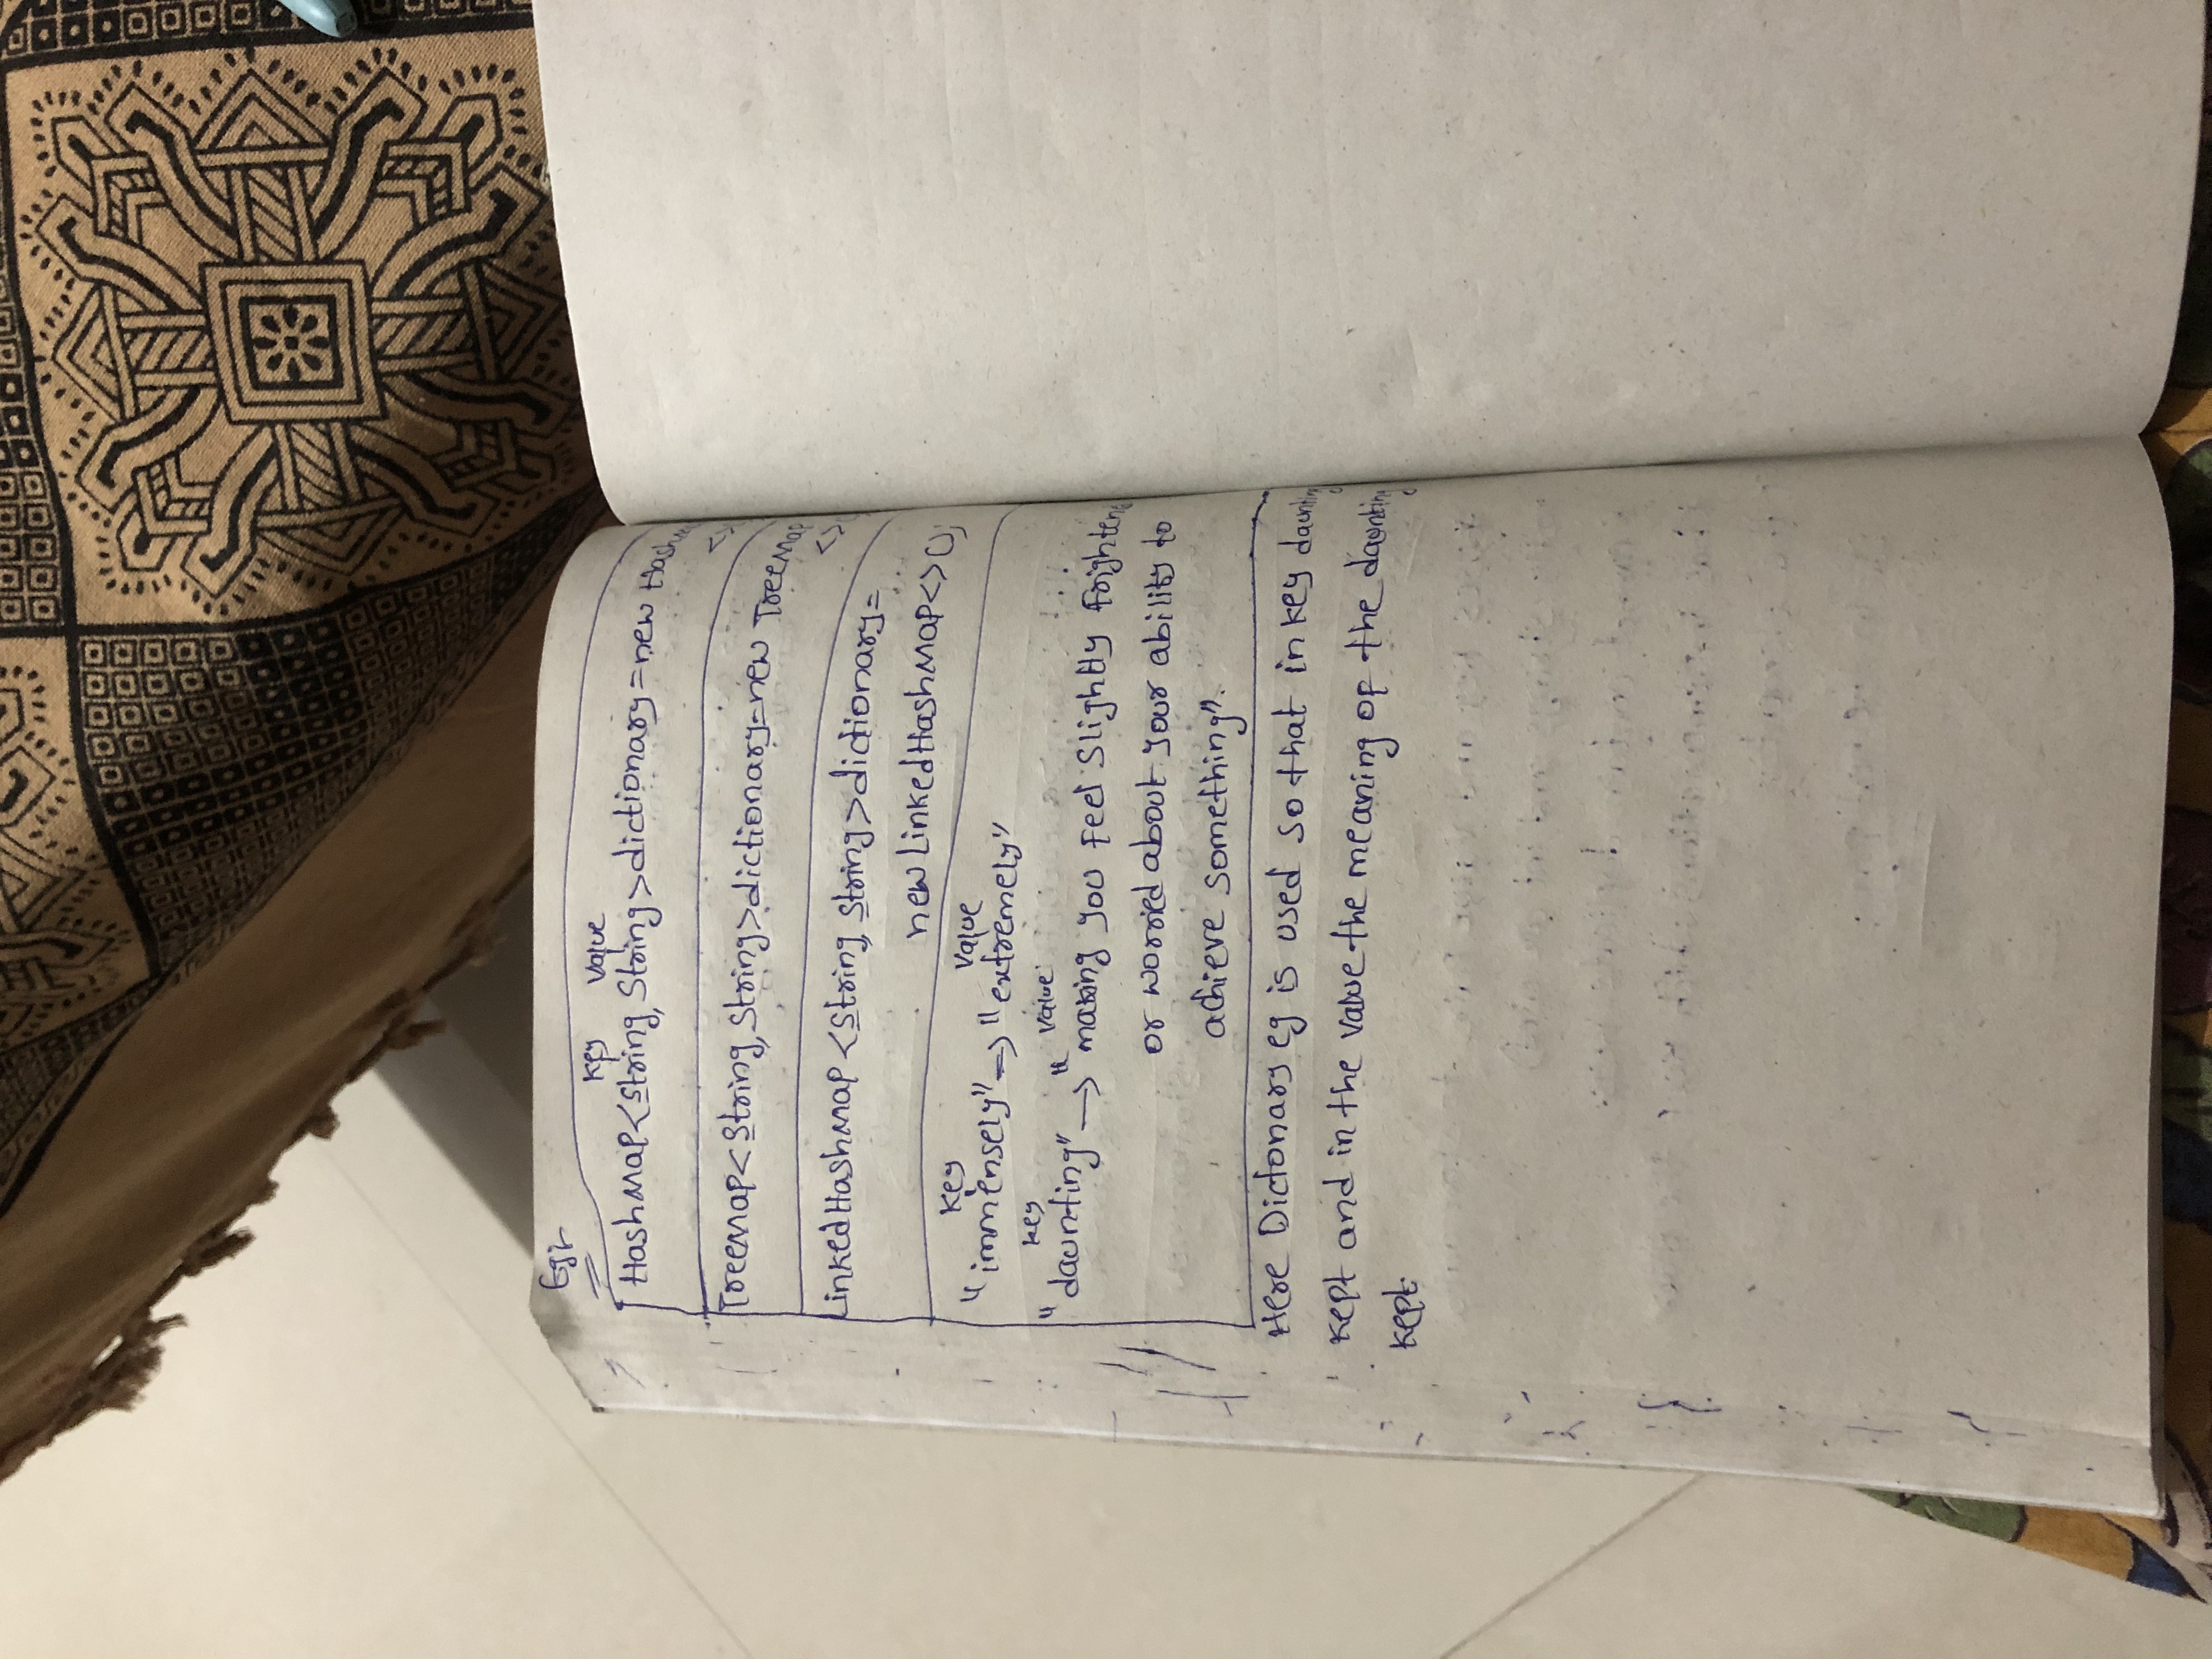 Eg:-
Key Value
HashMap<String, String>dictionary=new HashM
<>
TreeMap<String, String>dictionary=new TreeMap
<>
LinkedHashMap <String, String>dictionary=
new LinkedHashMap<>();
Key Value
"immensely" => "extremely"
key Value
"daunting" → "making you feel slightly frightene
or worried about your ability to
achieve something".
Here Dictonary eg is used so that in key daunting
kept and in the value the meaning of the daunting
kept.